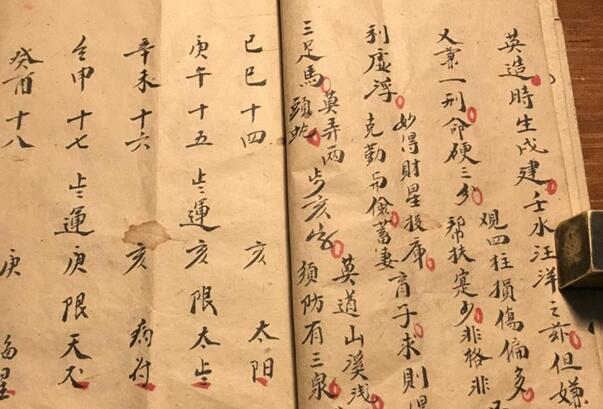 英造時生戌建壬水汪洋之 但嫌
觀四柱損傷偏多
又兼一刑命硬三分 幫扶蹇少非格非
妙得財星投庫 育子求則
利虛浮 克勤与儉蓄妻
莫弄兩 莫道山溪浅
三足馬 頭蛇 步亥字 須防有三泉
己巳十四 亥 太阳
庚午十五 運 亥限太
辛未十六 亥 病符
壬申十七 運 庚限天
癸酉十八 庚